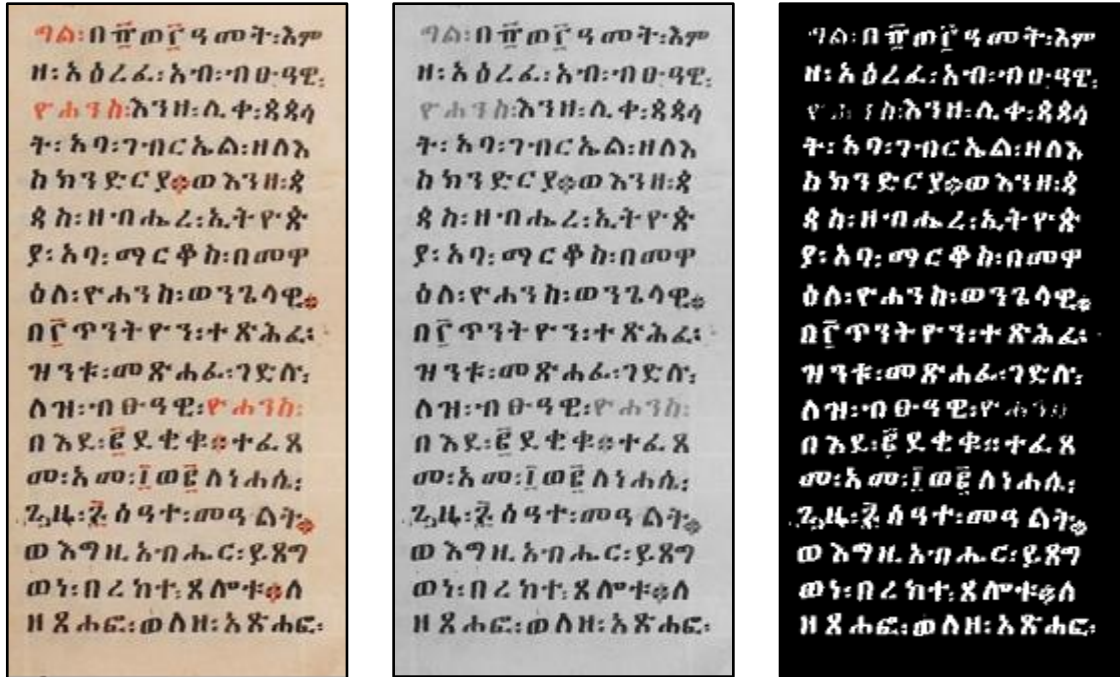 ግል፡በ፹ወ፫ዓመት፡እም
ዘ፡አዕረፈ፡አብ፡ብፁዓዊ፡
ዮሐንስ፡እንዘ፡ሊቀ፡ጳጳሳ
ት፡አባ፡ገብርኤል፡ዘለእ
ስክንድርያ፨ወእንዘ፡ጳ
ጳስ፡ዘብሔረ፡ኢትዮጵ
ያ፡አባ፡ማርቆስ፡በመዋ
ዕለ፡ዮሐንስ፡ወንጌላዊ፨
በ፫ጥንትዮን፡ተጽሕፈ፡
ዝንቱ፡መጽሐፈ፡ገድሉ፡
ለዝ፡ብፁዓዊ፡ዮሐንስ፡
በእደ፡፪ደቂቁ፨ተፈጸ
መ፡አመ፡፲ወ፪ለነሐሲ፡
ጊዜ፡፯ሰዓተ፡መዓልት፨
ወእግዚአብሔር፡ይጸግ
ወነ፡በረከተ፡ጸሎቱ፨ለ
ዘጸሐፎ፡ወለዘ፡አጽሐፎ፡
ግል፡በ፹ወ፫ዓመት፡እም
ዘ፡አዕረፈ፡አብ፡ብፁዓዊ፡
ዮሐንስ፡እንዘ፡ሊቀ፡ጳጳሳ
ት፡አባ፡ገብርኤል፡ዘለእ
ስክንድርያ፨ወእንዘ፡ጳ
ጳስ፡ዘብሔረ፡ኢትዮጵ
ያ፡አባ፡ማርቆስ፡በመዋ
ዕለ፡ዮሐንስ፡ወንጌላዊ፨
በ፫ጥንትዮን፡ተጽሕፈ፡
ዝንቱ፡መጽሐፈ፡ገድሉ፡
ለዝ፡ብፁዓዊ፡ዮሐንስ፡
በእደ፡፪ደቂቁ፨ተፈጸ
መ፡አመ፡፲ወ፪ለነሐሲ፡
ጊዜ፡፯ሰዓተ፡መዓልት፨
ወእግዚአብሔር፡ይጸግ
ወነ፡በረከተ፡ጸሎቱ፨ለ
ዘጸሐፎ፡ወለዘ፡አጽሐፎ፡
ግል፡በ፹ወ፫ዓመት፡እም
ዘ፡አዕረፈ፡አብ፡ብፁዓዊ፡
ዮሐንስ፡እንዘ፡ሊቀ፡ጳጳሳ
ት፡አባ፡ገብርኤል፡ዘለእ
ስክንድርያ፨ወእንዘ፡ጳ
ጳስ፡ዘብሔረ፡ኢትዮጵ
ያ፡አባ፡ማርቆስ፡በመዋ
ዕለ፡ዮሐንስ፡ወንጌላዊ፨
በ፫ጥንትዮን፡ተጽሕፈ፡
ዝንቱ፡መጽሐፈ፡ገድሉ፡
ለዝ፡ብፁዓዊ፡ዮሐንስ
በእደ፡፪ደቂቁ፨ተፈጸ
መ፡አመ፡፲ወ፪ለነሐሲ፡
ጊዜ፡፯ሰዓተ፡መዓልት፨
ወእግዚአብሔር፡ይጸግ
ወነ፡በረከተ፡ጸሎቱ፨ለ
ዘጸሐፎ፡ወለዘ፡አጽሐፎ፡